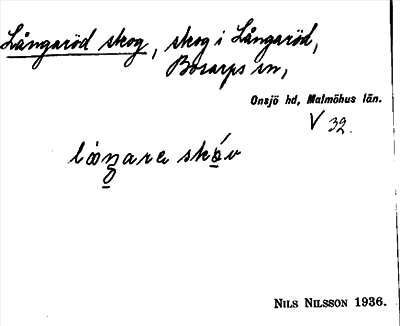 Långaröd skog, skog i Långaröd,
Bosarps sn,
Onsjö hd, Malmöhus län.
V 32.
låŋare skóv
NILS NILSSON 1936.